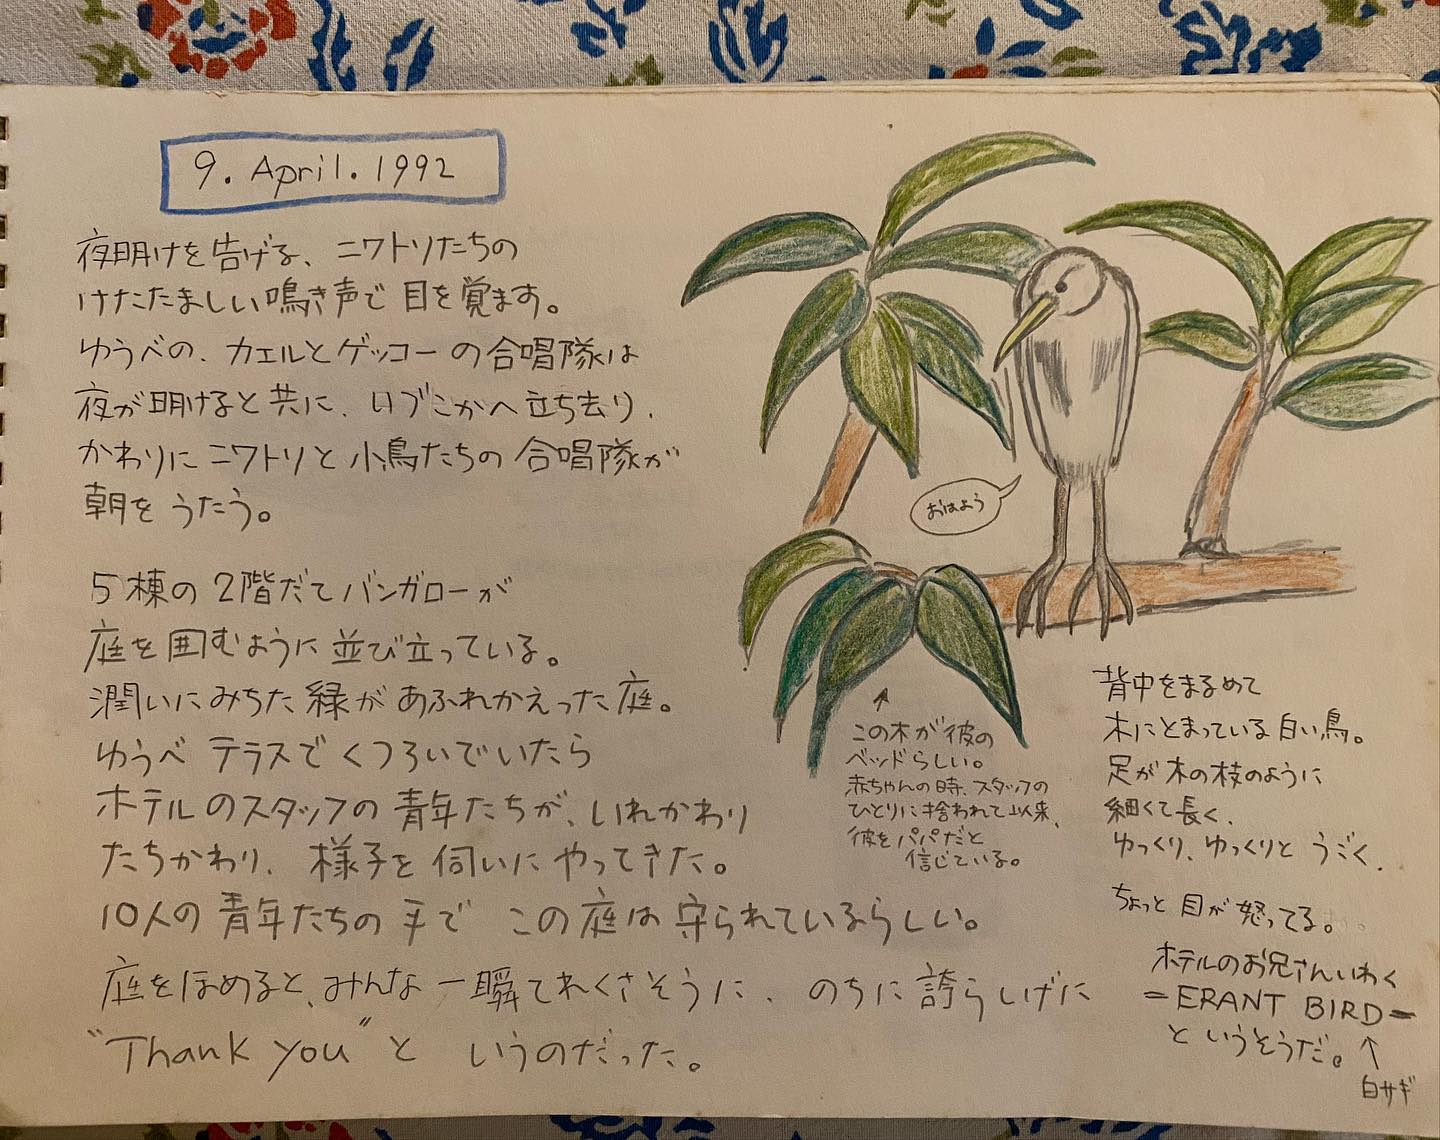 9. April. 1992
夜明けを告げる、ニワトリたちの
けたたましい鳴き声で目を覚ます。
ゆうべの、カエルとゲッコーの合唱隊は
夜が明けると共に、いづこかへ立ち去り、
かわりにニワトリと小鳥たちの合唱隊が
朝をうたう。
5棟の2階だてバンガローが
庭を囲むように並び立っている。
潤いにみちた緑があふれかえった庭。
ゆうべテラスでくつろいでいたら
ホテルのスタッフの青年たちが、いれかわり
たちかわり、様子を伺いにやってきた。
10人の青年たちの手で この庭は守られているらしい。
庭をほめると、みんな一瞬てれくさそうに、のちに誇らしげに
"Thank you"と いうのだった。
おはよう
この木が彼の
ベッドらしい。
赤ちゃんの時、スタッフの
ひとりに捨われて以来、
彼をパパだと
信じている。
背中をまるめて
木にとまっている白い鳥。
足が木の枝のように
細くて長く、
ゆっくり、ゆっくりと うごく、
ちょっと目が怒ってる。
ホテルのお兄さんいわく
=ERANT BIRD=
というそうだ。
↑
白サギ